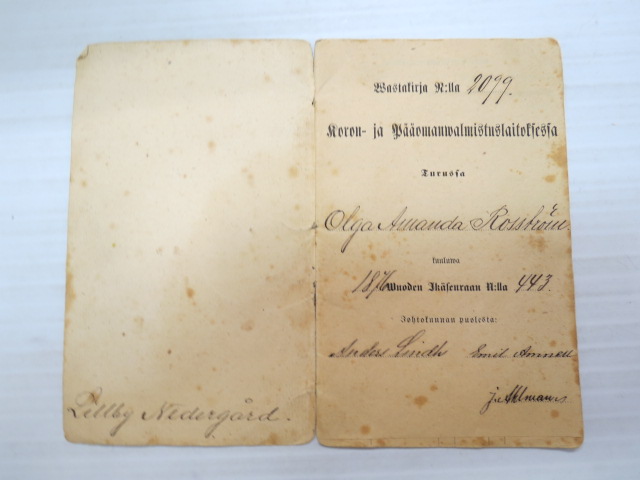 Lillby Nedergård.
Wastakirja N:lla 2099.
Koron- ja Pääomanwalmistuslaitoksessa
Turussa
Olga Amanda Rosström
kuuluwa
1876 Wuoden Ikäseuraan N:lla 443.
Johtokunnan puolesta:
Anders Lindh Emil